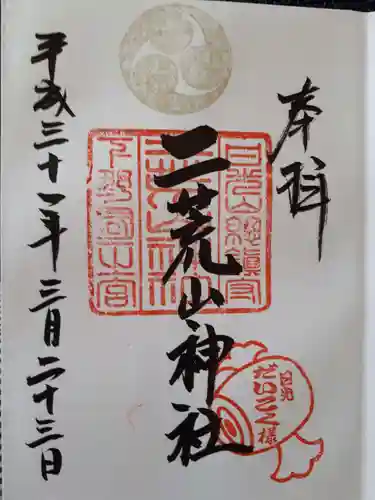 奉拝
日光山総鎮守
二荒山神社
下野国一宮
日光
だいこく様
平成三十一年三月二十三日